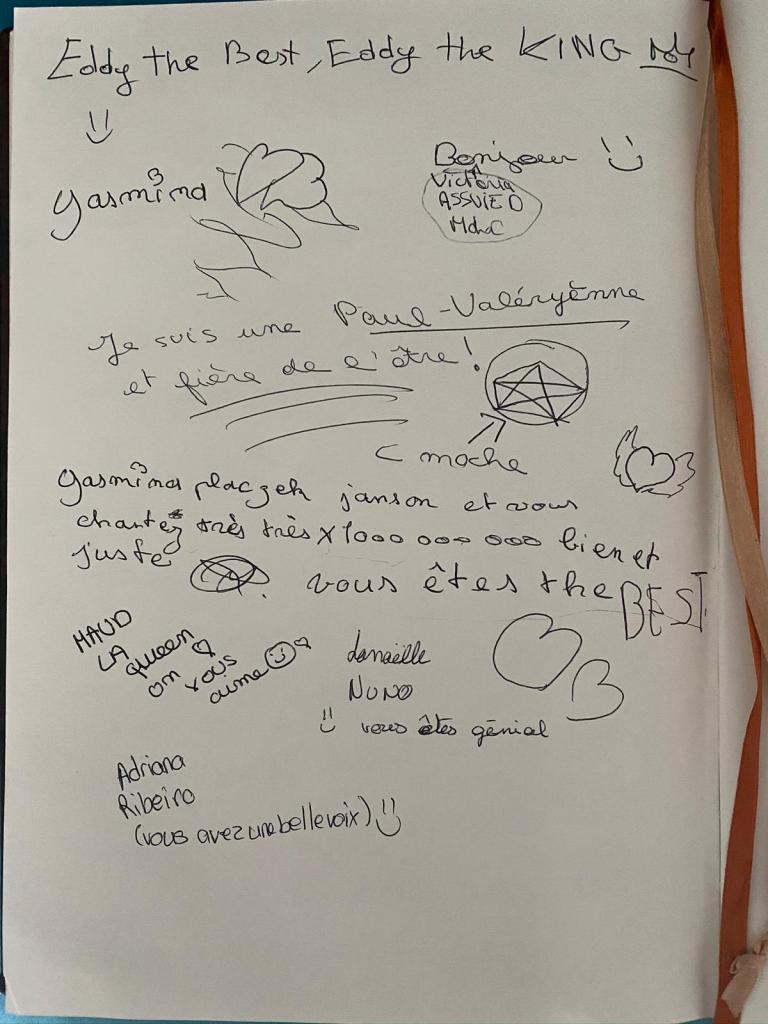 Eddy the Best, Eddy the KING
Yasmina
Bonjour
Victoria
ASSVIED
MdhC
Je suis une Paul-Valéryènne
et fière de l'être!
C moche
Yasmina placzek janson et vous
chantez très très x1000 000 000 bien et
juste
. vous êtes the BEST.
MAUD
LA
queen
on vous
aime
danaëlle
NUNO
vous êtes génial
Adriana
Ribeiro
(vous avez une belle voix)